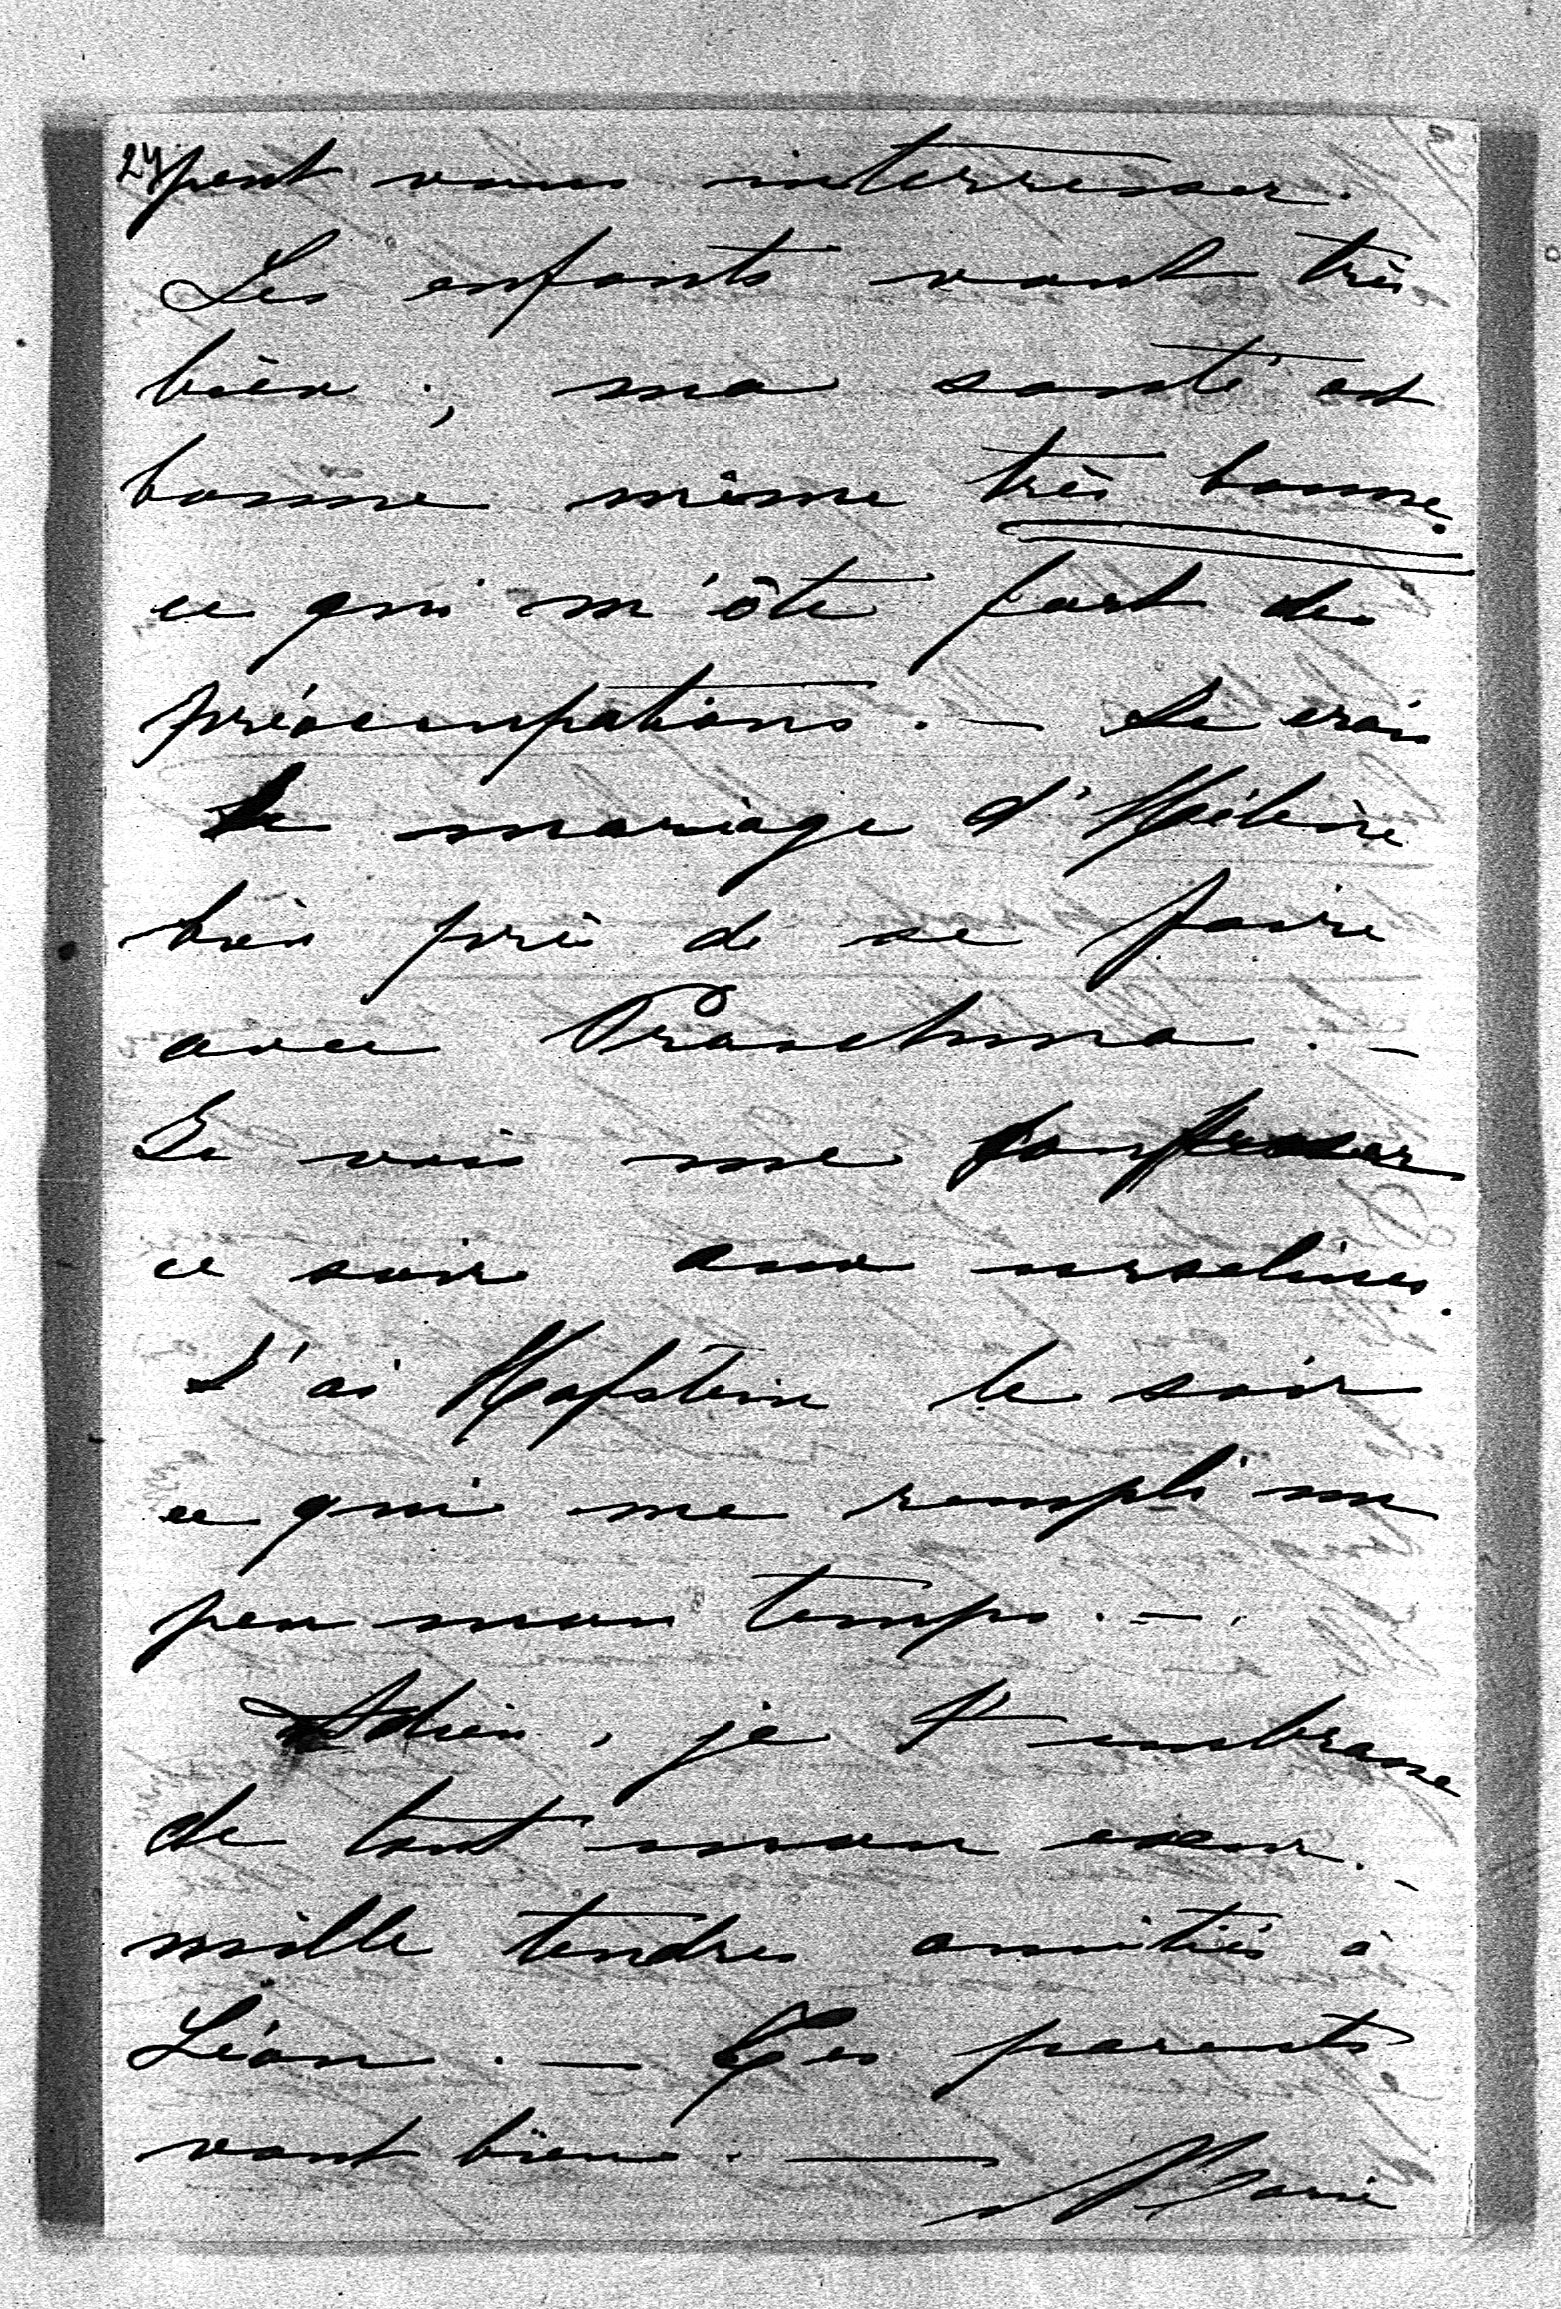 24
peut vous interresser.
Les enfants vont très
bien ; ma santé est
bonne même très bonne.
ce qui m'ôte fort de
préoccupations. — Je crois
le mariage d'Hélène
bien près de se faire
avec . —
Je vais me confesser
ce soir aux urselines.
J'ai Hofstein le soir
ce qui me rempli un
peu mon temps. —
Adieu, je t'embrasse
de tout mon cœur. -
mille tendres amitiés à
Léon. — Tes parents
vont bien. —
Marie